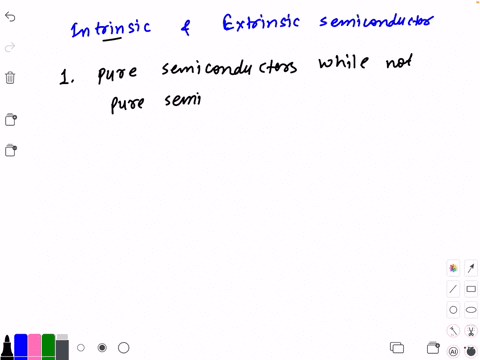 Intrinsic & Extrinsic semiconductor
1. pure semiconductors while not
pure semi